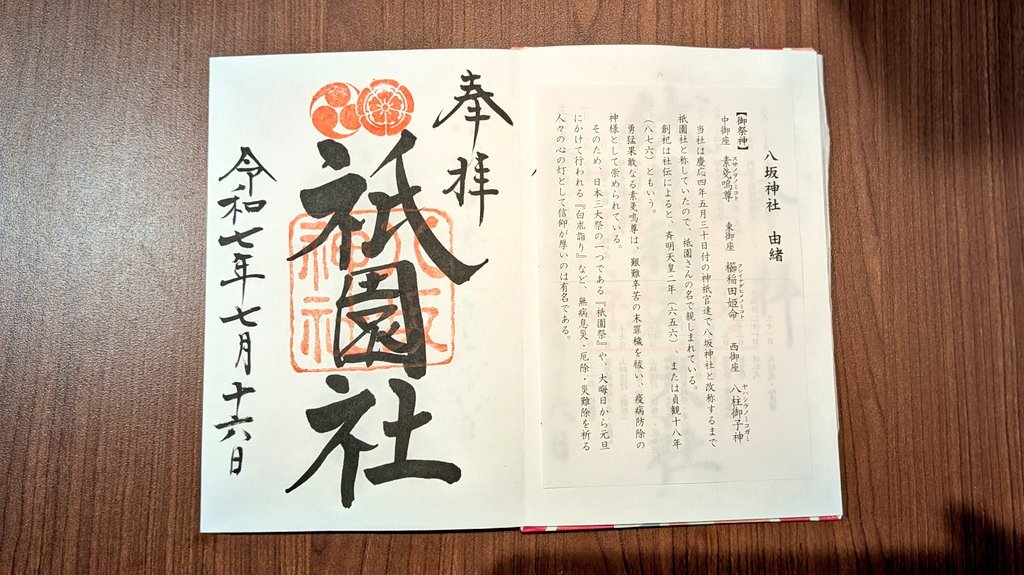 八坂神社　由緒
【御祭神】
中御座　素戔嗚尊　東御座　櫛稲田姫命　西御座　八柱御子神
当社は慶応四年五月三十日付の神祇官達で八坂神社と改称するまで
祇園社と称していたので、祇園さんの名で親しまれている。
創祀は社伝によると、斉明天皇二年（六五六）、または貞観十八年
（八七六）ともいう。
勇猛果敢なる素戔嗚尊は、艱難辛苦の末罪穢を祓い、疫病防除の
神様として崇められている。
そのため、日本三大祭の一つである『祇園祭』や、大晦日から元旦
にかけて行われる『白朮詣り』など、無病息災・厄除・災難除を祈る
人々の心の灯として信仰が厚いのは有名である。
奉拝
祇園社
八坂
神社
令和七年七月十六日